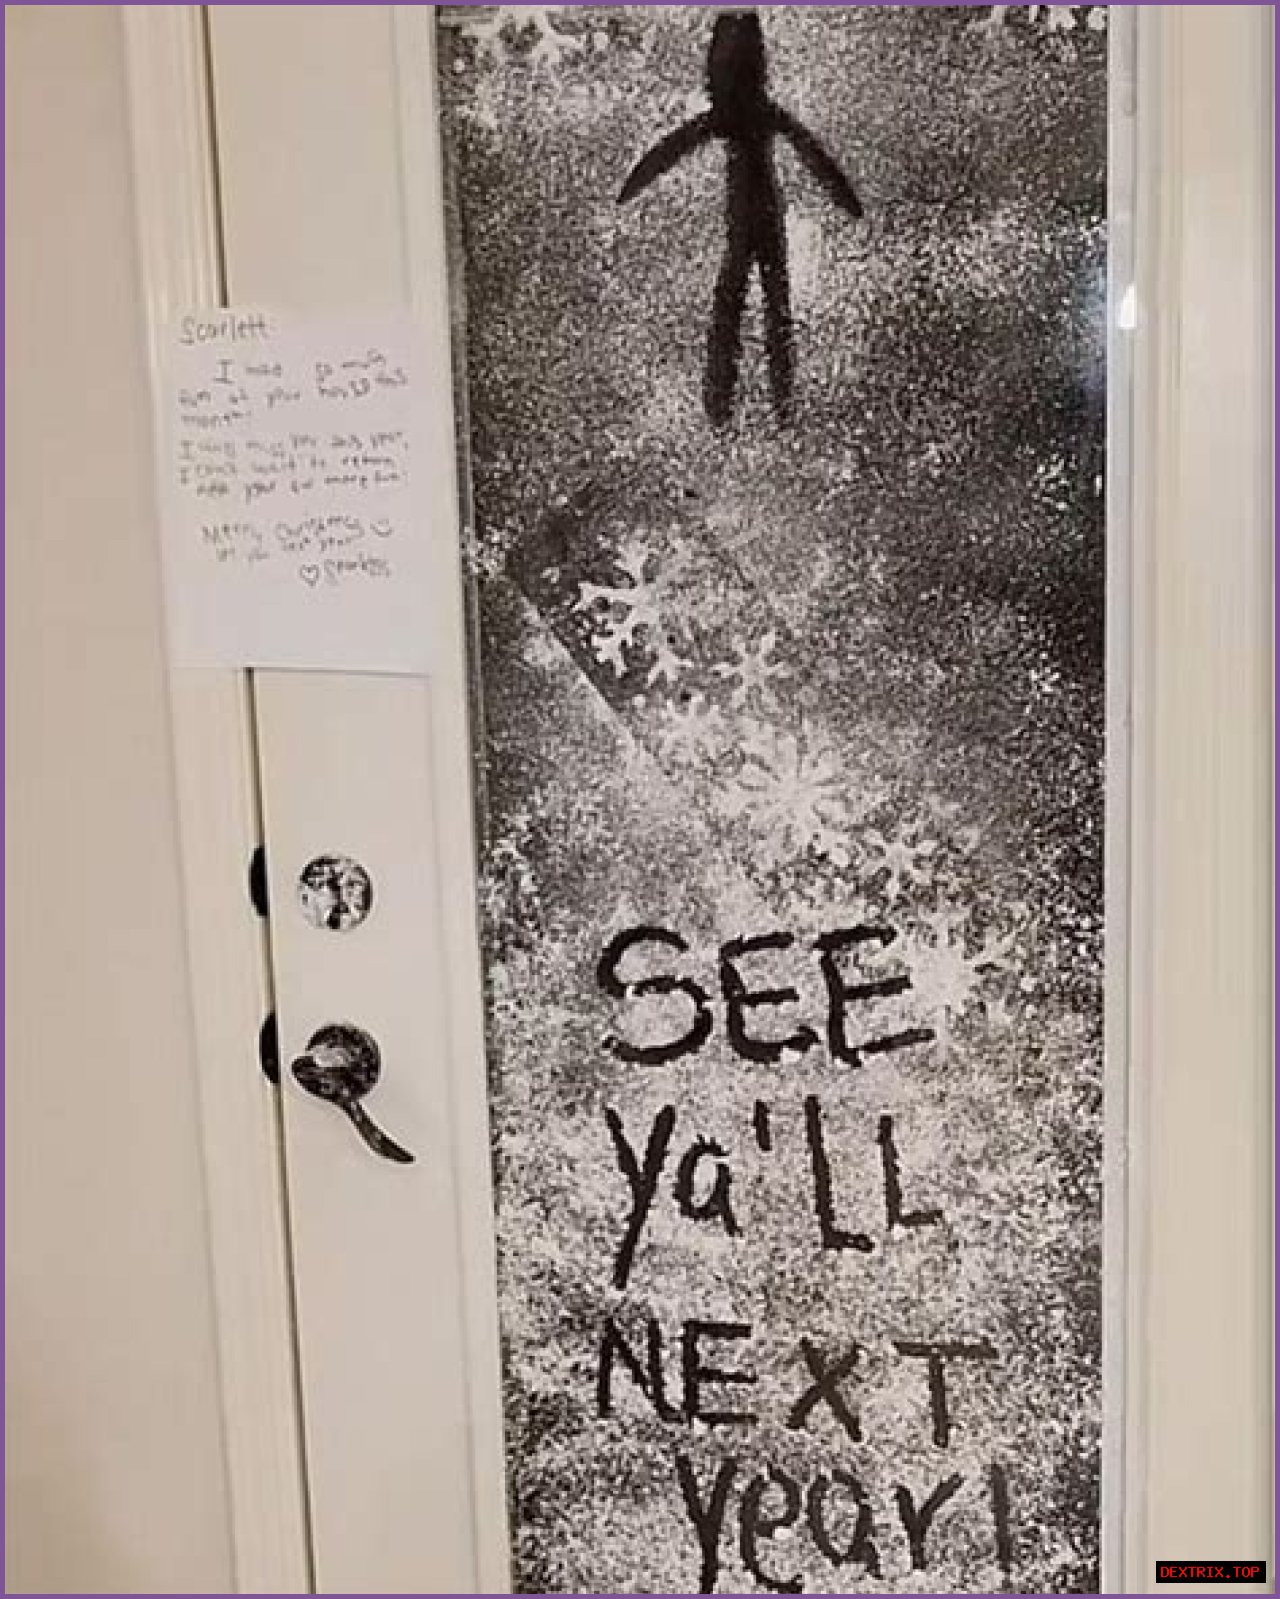 Scarlett
I had so much
fun at your house this
month!
I will miss you this year,
I can't wait to return
next year for more fun!
Merry Christmas
see you next year
♡ Sparkles
SEE
Ya'LL
NEXT
year!
DEXTRIX.TOP